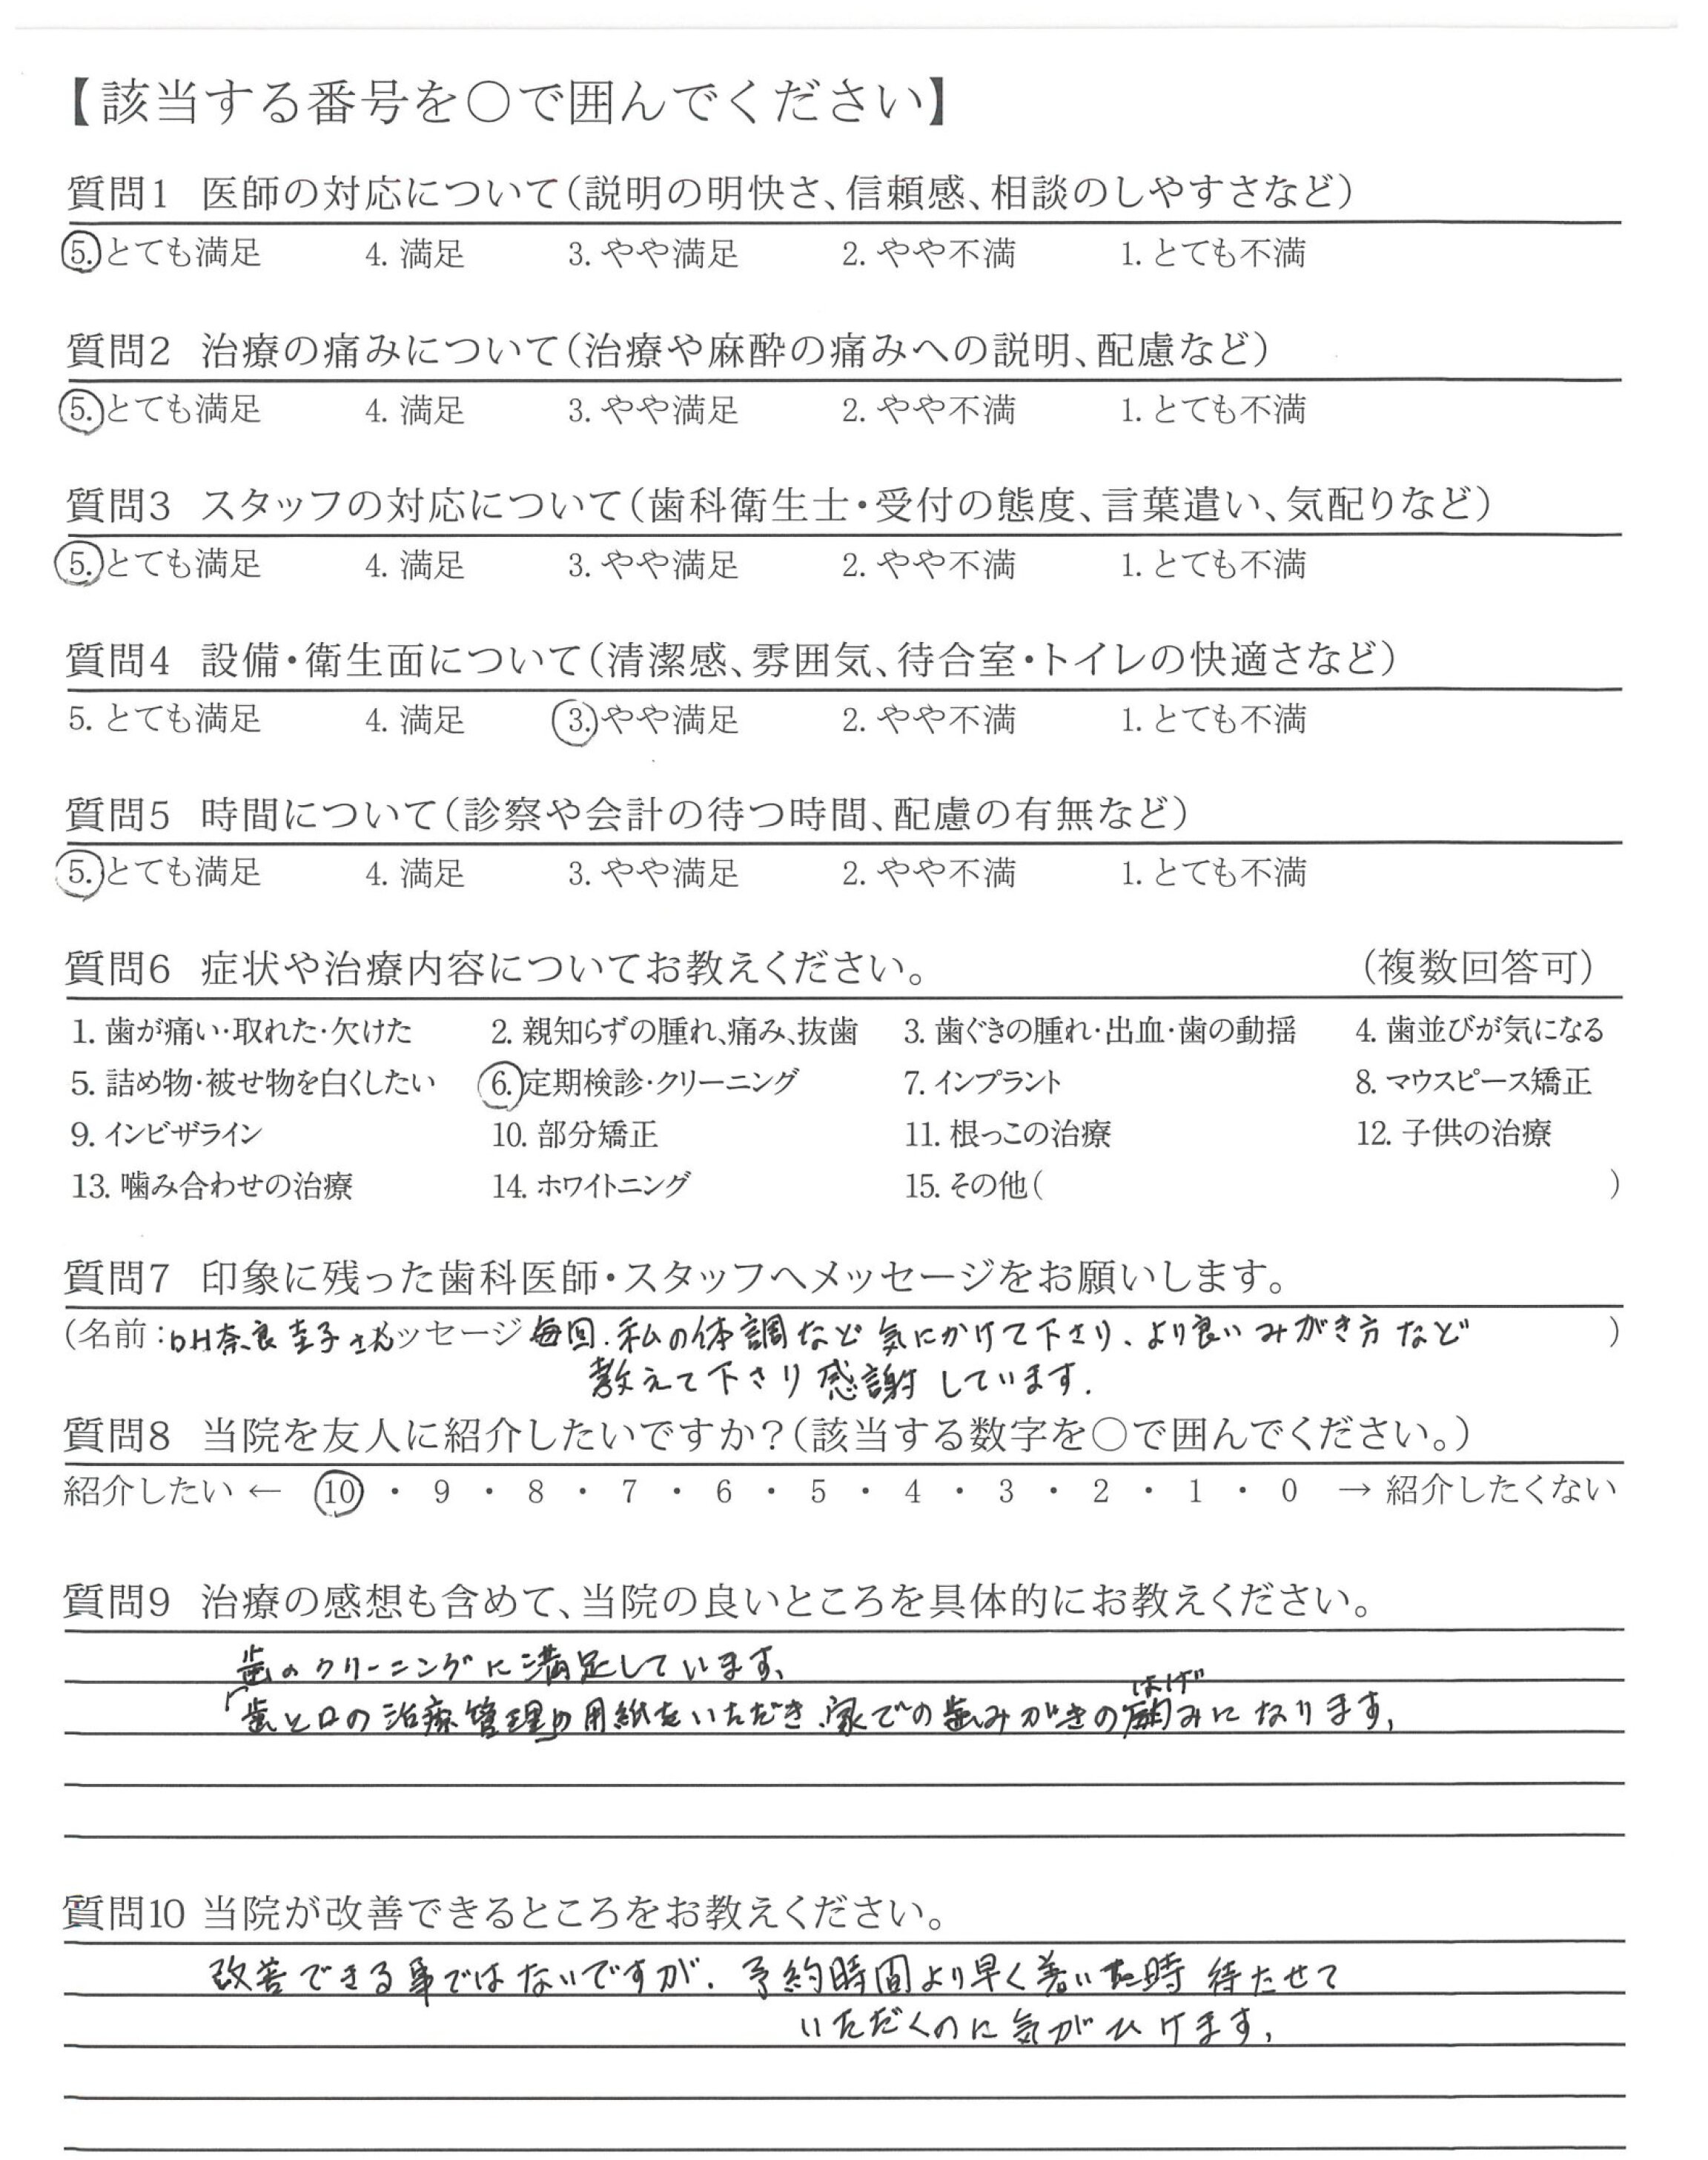 【該当する番号を○で囲んでください】
質問1 医師の対応について(説明の明快さ、信頼感、相談のしやすさなど)
5. とても満足 4. 満足 3. やや満足 2. やや不満 1. とても不満
質問2 治療の痛みについて(治療や麻酔の痛みへの説明、配慮など)
5. とても満足 4. 満足 3. やや満足 2. やや不満 1. とても不満
質問3 スタッフの対応について(歯科衛生士・受付の態度、言葉遣い、気配りなど)
5. とても満足 4. 満足 3. やや満足 2. やや不満 1. とても不満
質問4 設備・衛生面について(清潔感、雰囲気、待合室・トイレの快適さなど)
5. とても満足 4. 満足 3. やや満足 2. やや不満 1. とても不満
質問5 時間について(診察や会計の待つ時間、配慮の有無など)
5. とても満足 4. 満足 3. やや満足 2. やや不満 1. とても不満
質問6 症状や治療内容についてお教えください。 (複数回答可)
1. 歯が痛い・取れた・欠けた 2. 親知らずの腫れ、痛み、抜歯 3. 歯ぐきの腫れ・出血・歯の動揺 4. 歯並びが気になる
5. 詰め物・被せ物を白くしたい 6. 定期検診・クリーニング 7. インプラント 8. マウスピース矯正
9. インビザライン 10. 部分矯正 11. 根っこの治療 12. 子供の治療
13. 噛み合わせの治療 14. ホワイトニング 15. その他( )
質問7 印象に残った歯科医師・スタッフへメッセージをお願いします。
(名前:DH奈良圭子さん メッセージ 毎回、私の体調など気にかけて下さり、より良いみがき方など )
教えて下さり感謝しています.
質問8 当院を友人に紹介したいですか?(該当する数字を○で囲んでください。)
紹介したい ← 10 ・ 9 ・ 8 ・ 7 ・ 6 ・ 5 ・ 4 ・ 3 ・ 2 ・ 1 ・ 0 → 紹介したくない
質問9 治療の感想も含めて、当院の良いところを具体的にお教えください。
歯のクリーニングに満足しています、
はげ
「歯と口の治療管理」の用紙をいただき、家での歯みがきの みになります,
質問10 当院が改善できるところをお教えください。
改善できる事ではないですが、予約時間より早く着いた時 待たせて
いただくのに気がひけます,